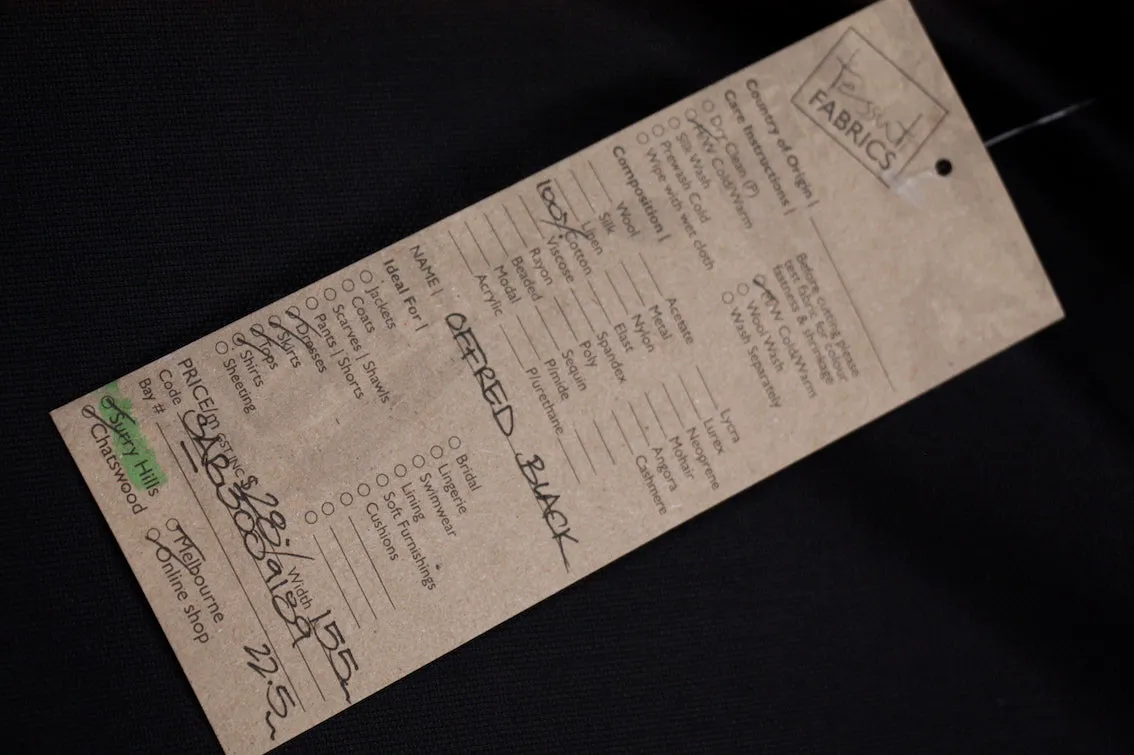 Tessuti
FABRICS
Country of Origin |
Care Instructions |
Dry Clean (P)
H/W Cold/Warm
Silk Wash
Prewash Cold
Wipe with wet cloth
Before cutting please
test fabric for colour
fastness & shrinkage
M/W Cold/Warm
Wool Wash
Wash Separately
Composition |
Wool
Silk
Linen
100% Cotton
Viscose
Rayon
Beaded
Modal
Acrylic
Acetate
Metal
Nylon
Elast
Spandex
Poly
Sequin
P/mide
P/urethane
Lycra
Lurex
Neoprene
Mohair
Angora
Cashmere
NAME | OFFRED BLACK
Ideal For |
Jackets
Coats
Scarves | Shawls
Pants | Shorts
Dresses
Skirts
Tops
Shirts
Sheeting
Bridal
Lingerie
Swimwear
Lining
Soft Furnishings
Cushions
PRICE/m GST INC $ 28.- Width 155m
Code
Bay # 22.5m
Surry Hills
Chatswood
Melbourne
Online shop